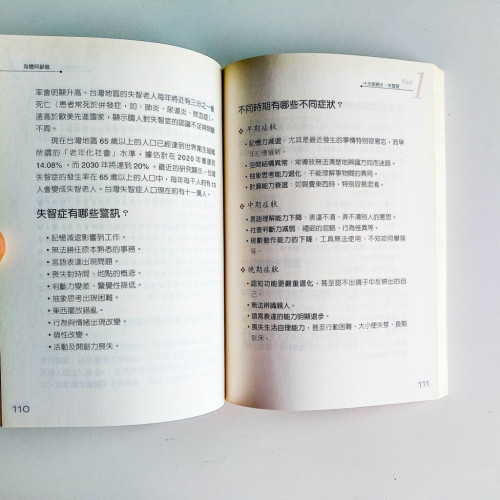 率會明顯升高。台灣地區的失智老人每年將近有三分之一會
死亡（患者常死於併發症，如：肺炎、尿道炎、敗血症），
遠高於歐美先進國家，顯示國人對失智症的認識不足與照顧
不周。
現在台灣地區 65 歲以上的人口已經達到世界衛生組織
所謂的「老年化社會」水準，據估計在 2020 年會達到
14.08%，而 2030 年將達到 20%。最近的研究顯示，台灣
失智症的發生率在 65 歲以上的人口中，每年每千人約有 13
人會變成失智老人。台灣失智症人口現在約有十一萬人。
失智症有哪些警訊？
•記憶減退影響到工作。
•無法勝任原本熟悉的事務。
•言語表達出現問題。
•喪失對時間、地點的概念。
•判斷力變差、警覺性降低。
•抽象思考出現困難。
•東西擺放錯亂。
•行為與情緒出現改變。
•個性改變。
•活動及開創力喪失。
110
Part 1
不同時期有哪些不同症狀？
❖ 早期症狀
•記憶力減退：尤其是最近發生的事情特別容易忘，而早
年記憶猶新。
•空間結構異常：常導致無法清楚地辨識方向而迷路。
•抽象思考能力退化：不能理解事物間的異同。
•計算能力衰退：如買賣東西時，特別容易混肴。
❖ 中期症狀
•言語理解能力下降：表達不清、弄不清別人的意思。
•社會判斷力減弱：裡節的忽略、行為怪異等。
•規劃動作能力的下降：工具無法使用、不知如何舉筷
等。
❖ 晚期症狀
•認知功能更嚴重退化，甚至認不出鏡子中反映出的自
己。
•無法辨識親人。
•語言表達的能力明顯退步。
•喪失生活自理能力，甚至行動困難、大小便失禁、長期
臥床。
111